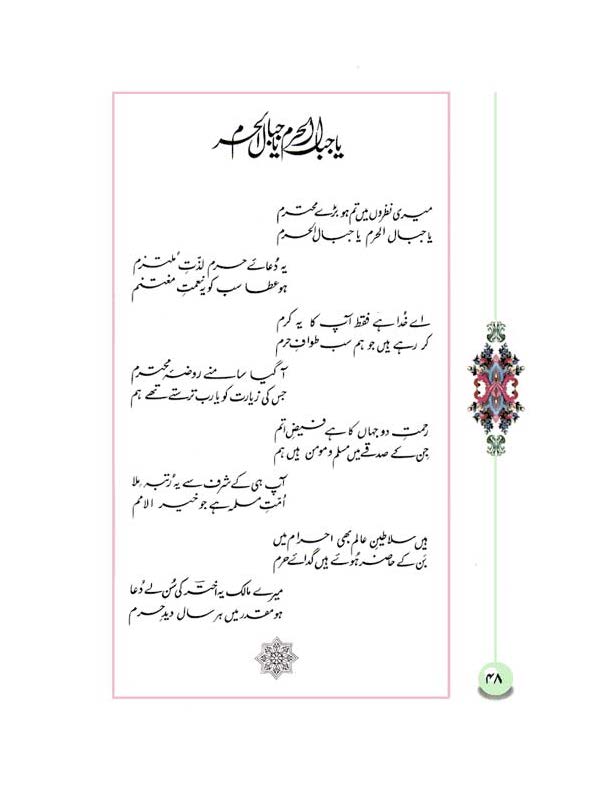 یا جبال الحرم یا جبال الحرم
میری نظروں میں تم ہو بڑے محترم
یا جبال الحرم یا جبال الحرم
یہ دُعائے حرم لذّتِ مُلتزم
ہو عطا سب کو یہ نعمتِ مغتنم
اے خُدا ہے فقط آپ کا یہ کرم
کر رہے ہیں جو ہم سب طوافِ حرم
آ گیا سامنے روضۂ محترم
جس کی زیارت کو یارب ترستے تھے ہم
رحمتِ دو جہاں کا ہے فیضِ اتم
جن کے صدقے میں مسلم و مومن ہیں ہم
آپ ہی کے شرف سے یہ رُتبہ مِلا
اُمّتِ مسلمہ ہے جو خیر الامم
ہیں سلاطینِ عالم بھی احرام میں
بَن کے حاضر ہُوئے ہیں گدائے حرم
میرے مالک یہ اختر کی سُن لے دُعا
ہو مقدر میں ہر سال دیدِ حرم
۴۸